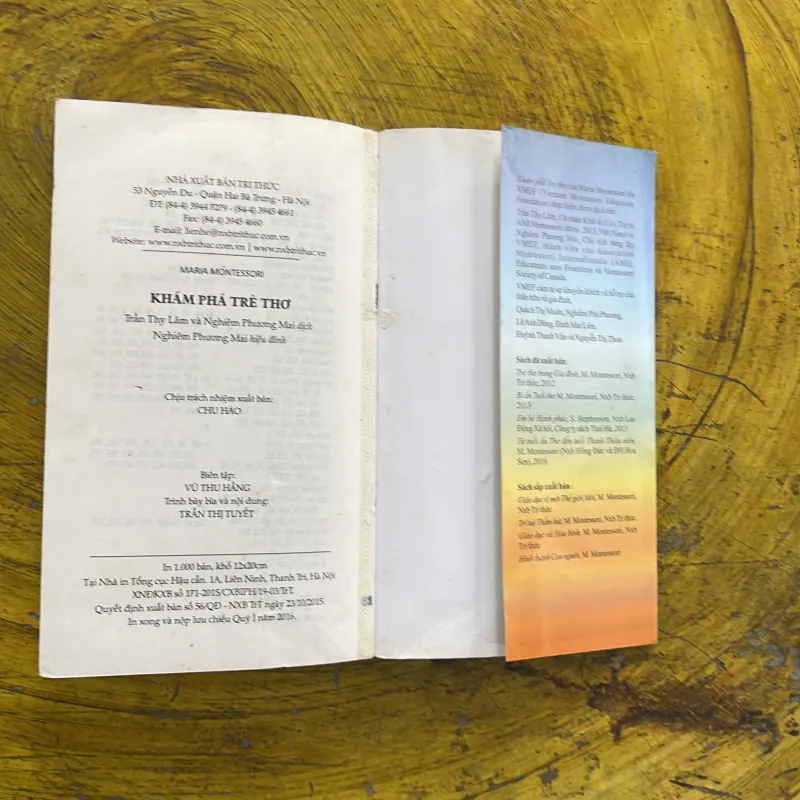 NHÀ XUẤT BẢN TRI THỨC
53 Nguyễn Du - Quận Hai Bà Trưng - Hà Nội
ĐT: (84-4) 3944 7279 - (84-4) 3945 4661
Fax: (84-4) 3945 4660
E-mail: lienhe@nxbtrithuc.com.vn
Website: www.nxbtrithuc.com.vn | www.nxbtrithuc.vn
MARIA MONTESSORI
KHÁM PHÁ TRẺ THƠ
Trần Thy Lâm và Nghiêm Phương Mai dịch
Nghiêm Phương Mai hiệu đính
Chịu trách nhiệm xuất bản:
CHU HẢO
Biên tập:
VŨ THU HẰNG
Trình bày bìa và nội dung:
TRẦN THỊ TUYẾT
In 1.000 bản, khổ 12x20cm
Tại Nhà in Tổng cục Hậu cần. 1A, Liên Ninh, Thanh Trì, Hà Nội
XNĐKXB số 171-2015/CXBIPH/19-03/TrT.
Quyết định xuất bản số 56/QĐ - NXB TrT ngày 23/10/2015.
In xong và nộp lưu chiểu Quý I năm 2016.
Khám phá Trẻ thơ của Maria Montessori do
VMEF (Vietnam Montessori Education
Foundation) thực hiện, được dịch bởi:
Trần Thy Lâm, Cử nhân Kinh tế
AMI Montessori khóa 2013, Việt Nam) và
Nghiêm Phương Mai, Chủ tịch sáng lập
VMEF, thành viên của Association
Montessori Internationale (AMI),
Educateurs sans Frontières và Montessori
Society of Canada.
VMEF cảm tạ sự khuyến khích và hỗ trợ của
thân hữu và gia đình,
Quách Thị Muôn, Nghiêm Phú Phương,
Lê Anh Dũng, Đinh Mai Liên,
Huỳnh Thanh Vân và Nguyễn Thị Thoa.
Sách đã xuất bản:
Trẻ thơ trong Gia đình, M. Montessori, Nxb
Tri thức, 2012
Bí ẩn Tuổi thơ M. Montessori, Nxb Tri thức,
2013
Em bé Hạnh phúc, S. Stephenson, Nxb Lao
Động Xã hội, Công ty sách Thái Hà, 2015
Từ tuổi Ấu Thơ đến tuổi Thanh Thiếu niên,
M. Montessori (Nxb Hồng Đức và ĐH Hoa
Sen), 2016
Sách sắp xuất bản :
Giáo dục vì một Thế giới Mới, M. Montessori,
Nxb Tri thức
Trí tuệ Thẩm hút, M. Montessori, Nxb Tri thức
Giáo dục và Hòa bình, M. Montessori, Nxb
Tri thức
Hình thành Con người, M. Montessori